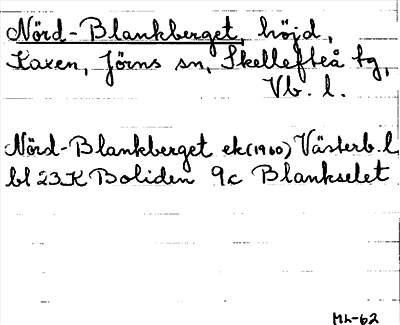 Nörd-Blankberget, höjd,
Kaxen, Jörns sn, Skellefteå tg,
Vb. l.
Nörd-Blankberget ek(1960) Västerb. l
bl 23K Boliden 9c Blankselet
ML-62